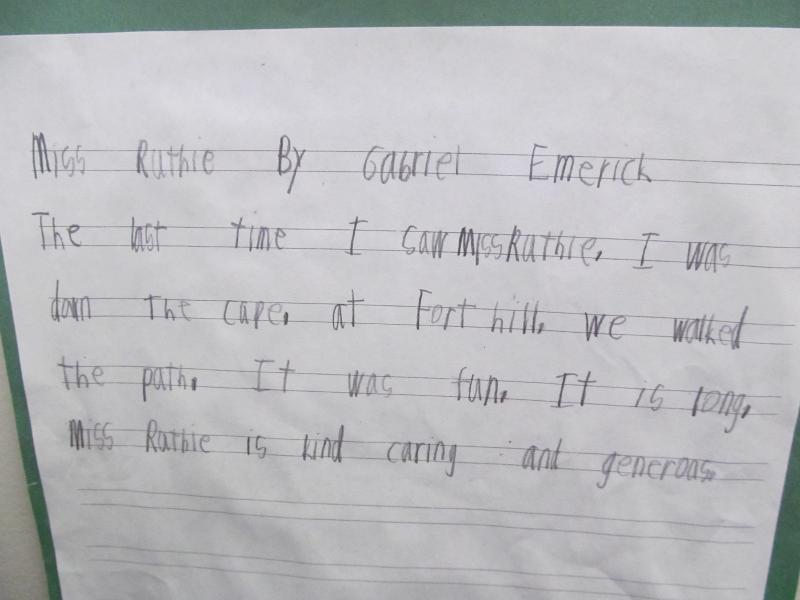 Miss Ruthie By Gabriel Emerich
The last time I saw Miss Ruthie, I was
down the cape. at Fort hill. we walked
the path. It was fun. It is long.
Miss Ruthie is kind caring and generous.